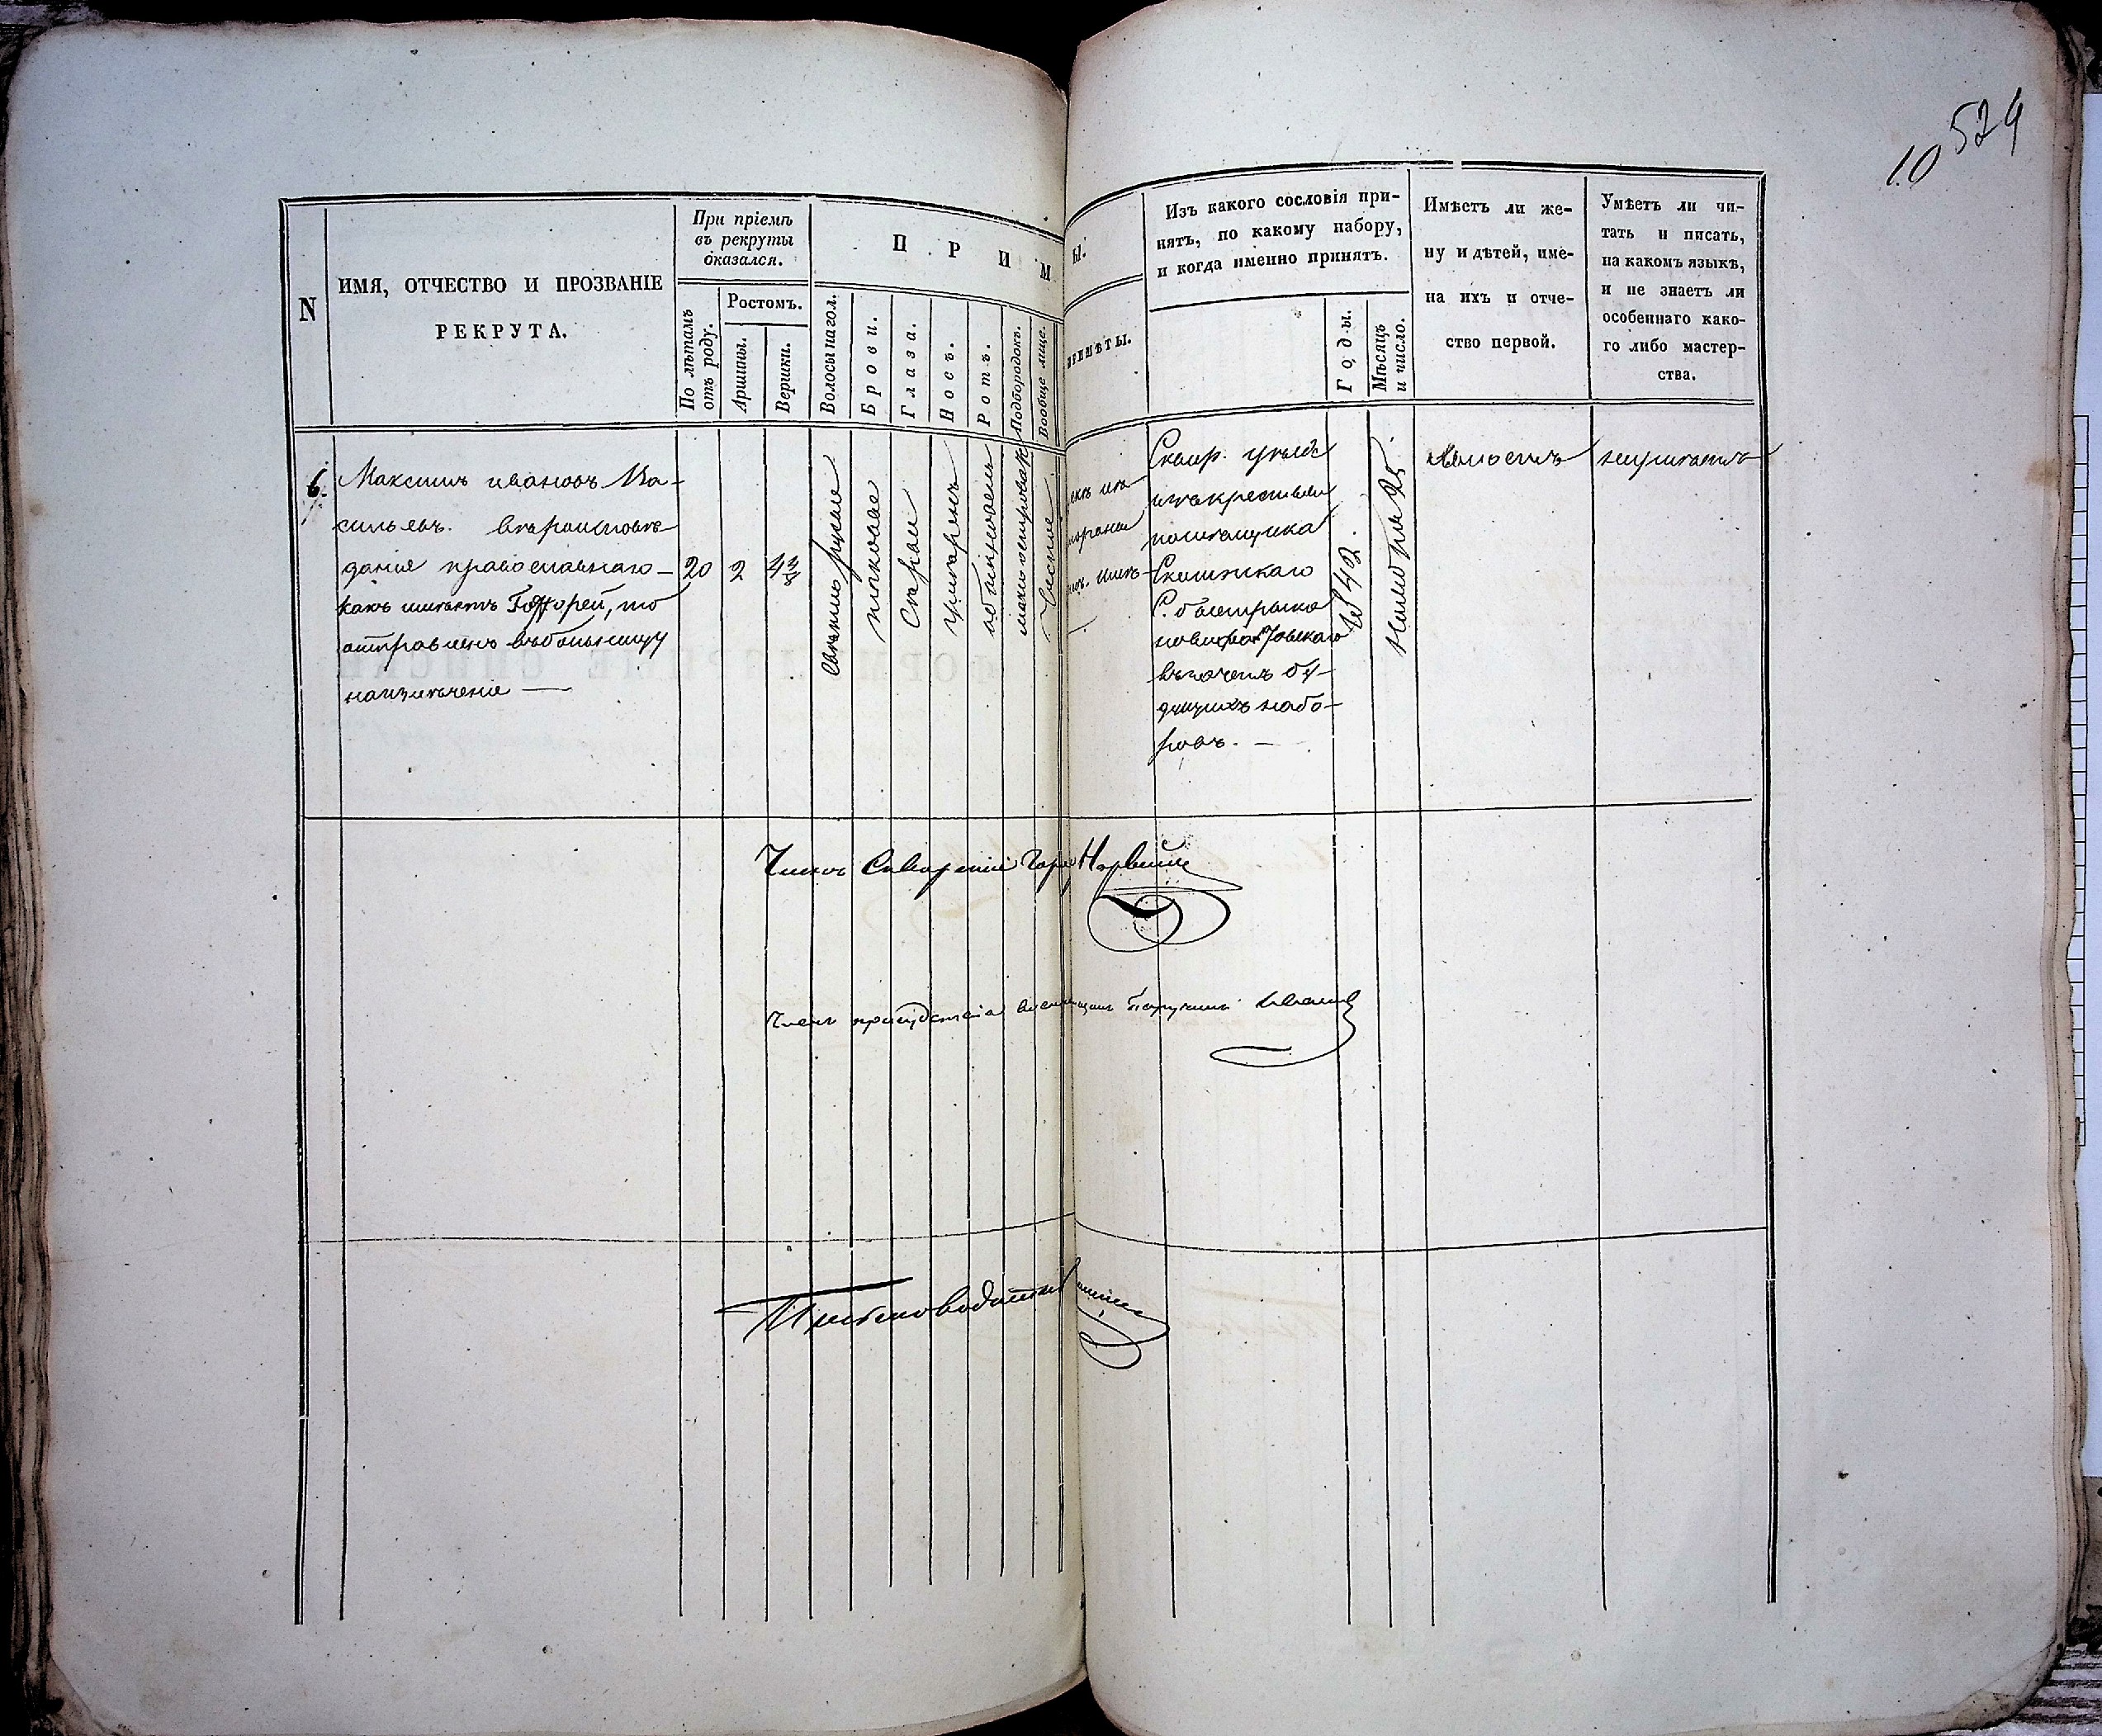 10 524
N
ИМЯ, ОТЧЕСТВО И ПРОЗВАНІЕ
РЕКРУТА.
При пріемѣ
въ рекруты
оказался.
По лѣтамъ
отъ роду.
Ростомъ.
Аршины.
Вершки.
ПРИМ
Волосы на гол.
Брови.
Глаза.
Носъ.
Ротъ.
Подбородокъ.
Вообще лице.
Ы.
ПРИМѢТЫ.
Изъ какого сословія при-
нятъ, по какому набору,
и когда именно принятъ.
Годы.
Мѣсяцъ
и число.
Имѣетъ ли же-
ну и дѣтей, име-
на ихъ и отче-
ство первой.
Умѣетъ ли чи-
тать и писать,
на какомъ языкѣ,
и не знаетъ ли
особеннаго како-
го либо мастер-
ства.
6.
Максимъ Ивановъ Ва-
сильевъ. вѣроисповѣ-
данія православнаго
какъ имѣетъ то
отправленъ въ больницу
на излѣченіе —
20
2
4
свѣтло русые
таковые
Серые
умѣренъ
обыкновенъ
мало островатъ
Чистое
уѣзда
изъ крестьянъ
помѣщика
С.
въ зачетъ бу-
дущихъ набо-
ровъ. —
1842.
Ноября 25.
холостъ
неумѣетъ
Членъ
Членъ присудствія военный Поручикъ